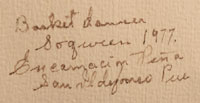 Basket dancer
Soqween 1977.
Encarnacion Peña
San Ildefonso Pue